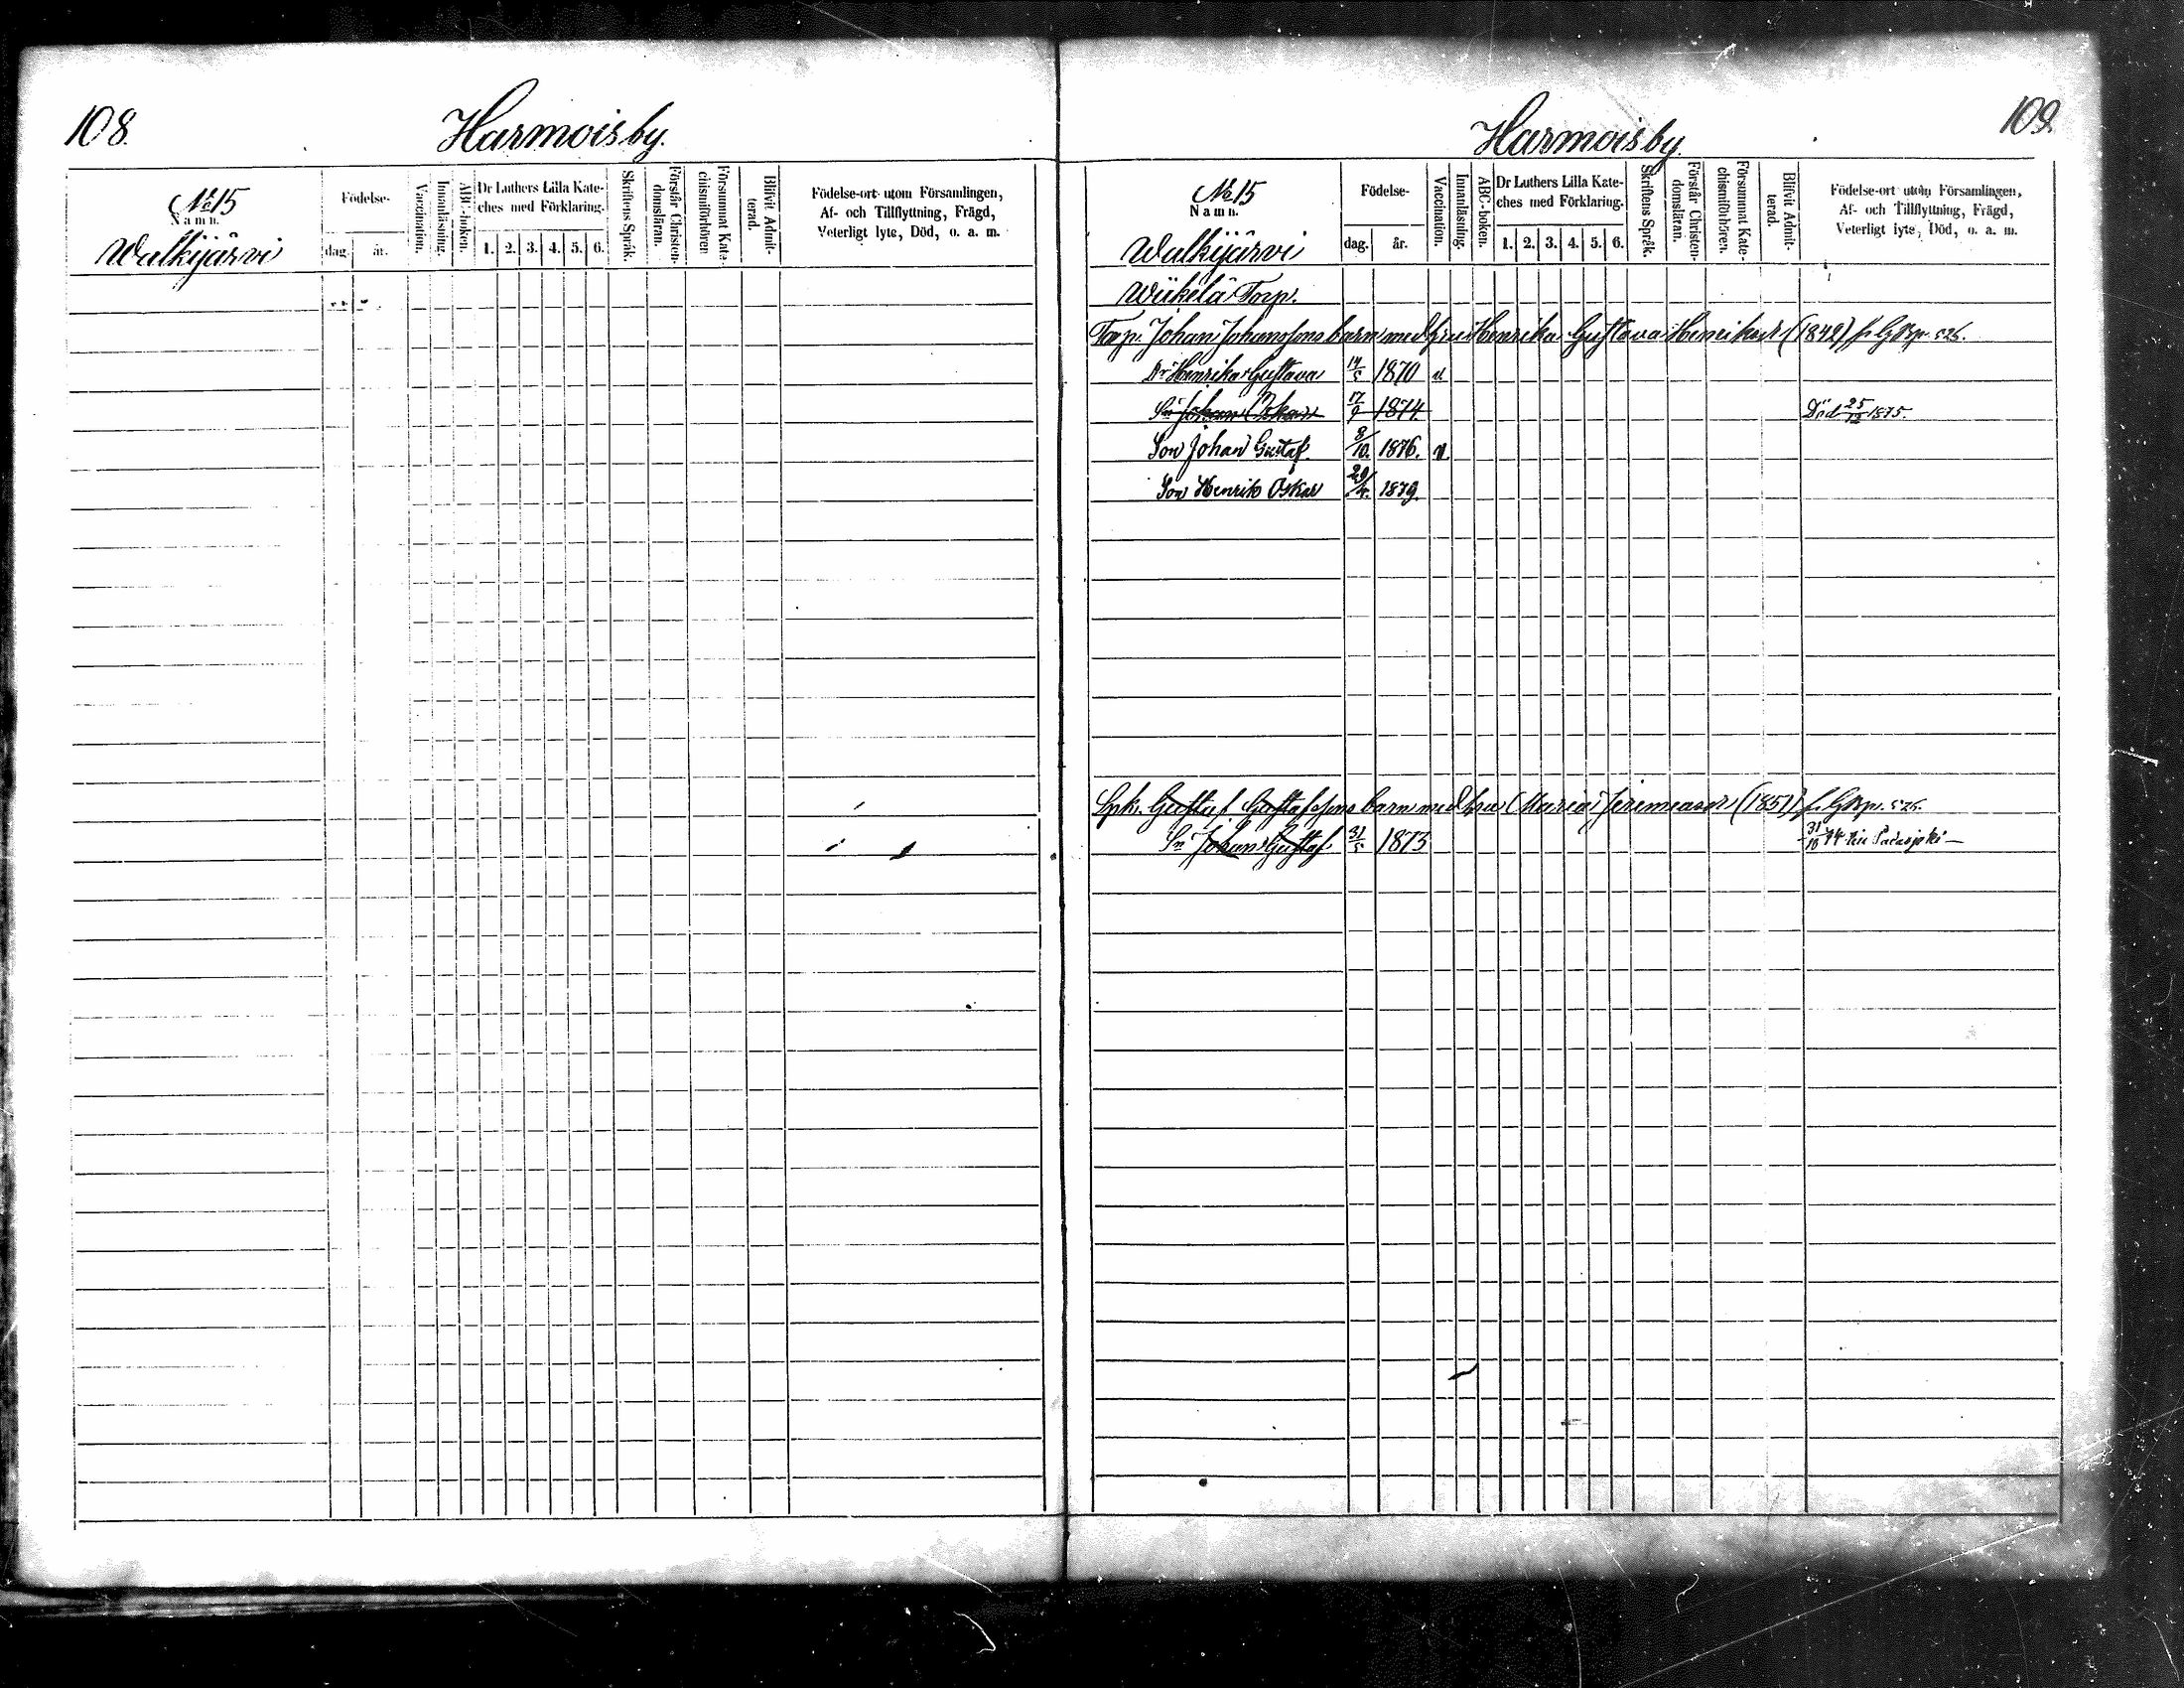 108.
Harmois by.
No 15
Namn.
Walkijärvi
Födelse-
dag. år.
Vaccination.
Innanläsning.
ABC-boken.
Dr Luthers Lilla Kate-
ches med Förklaring.
1. 2. 3. 4. 5. 6.
Skriftens Språk.
Förstår Christen-
domsläran.
Försummat Kate-
chismiförhören.
Blifvit Admit-
terad.
Födelse-ort utom Församlingen,
Af- och Tillflyttning, Frägd,
Veterligt lyte, Död, o. a. m.
109.
Harmois by
No 15
Namn.
Walkijärvi
Födelse-
dag. år.
Vaccination.
Innanläsning.
ABC-boken.
Dr Luthers Lilla Kate-
ches med Förklaring.
1. 2. 3. 4. 5. 6.
Skriftens Språk.
Förstår Christen-
domsläran.
Försummat Kate-
chismiförhören.
Blifvit Admit-
terad.
Födelse-ort utom Församlingen,
Af- och Tillflyttning, Frägd,
Veterligt lyte, Död, o. a. m.
Wiikelä Torp.
Torp. Johan Johanssons barn med hru Henrika Gustava Henriksdr (1849)
Dr Henrika Gustava 14/5 1870 v
Sn Johan Oskar 17/9 1874 Död 25/12 1875.
Son Johan Gustaf. 8/10. 1876. v
Son Henrik Oskar 29/4. 1879.
Spk. Gustaf Gustafssons barn med hru Maria Jeremiasdr (1851)
Sn Johan Gustaf 31/5 1873 31/10 74 Padasjoki